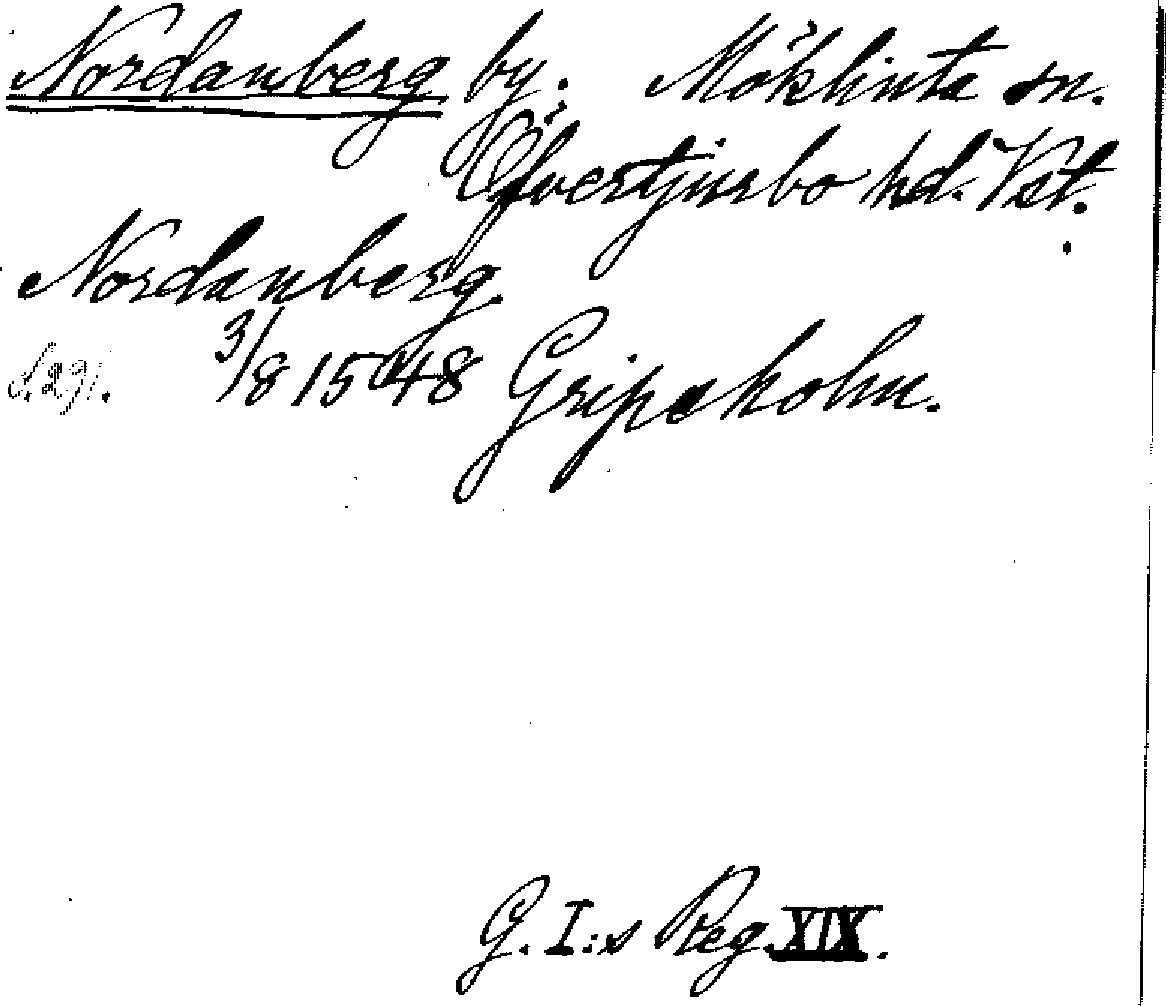 Nordanberg by. Möklinta sn.
Öfvertjurbo hd. Vstl.
Nordanberg.
S. 291. 3/8 1548 Gripsholm.
G. I:s Reg. XIX.